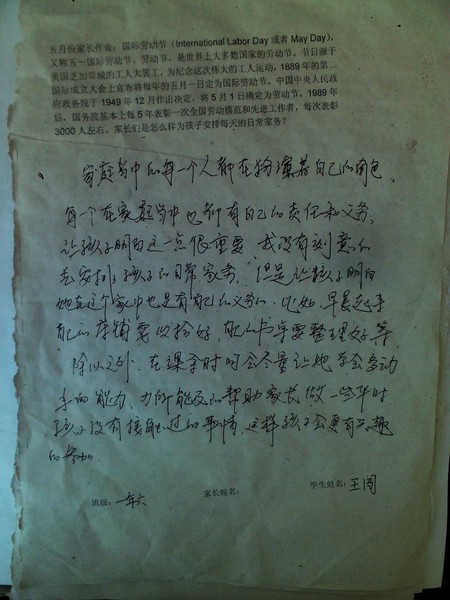 五月份家长作业：国际劳动节（International Labor Day 或者 May Day），
又称五一国际劳动节、劳动节，是世界上大多数国家的劳动节。节日源于
美国芝加哥城的工人大罢工，为纪念这次伟大的工人运动，1889年的第二
国际成立大会上宣布将每年的五月一日定为国际劳动节。中国中央人民政
府政务院于1949年12月作出决定，将5月1日确定为劳动节。1989年
后，国务院基本上每5年表彰一次全国劳动模范和先进工作者，每次表彰
3000人左右。家长们是怎么样为孩子安排每天的日常家务？
家庭当中的每一个人都在扮演着自己的角色、
每一个在家庭当中也都有自己的责任和义务。
让孩子明白这一点很重要。我没有刻意的
去安排孩子的日常家务。但是让孩子明白
她在这个家中也是有自己的义务的。比如，早晨起来
自己的床铺要收拾好，自己的书桌要整理好等
除此之外，在课余时间会尽量让她学会多动
手的能力、力所能及的帮助家长做一些平时
孩子没有接触过的事情，这样孩子会更有兴趣
的参加
班级：一年六
家长姓名：
学生姓名：王闯